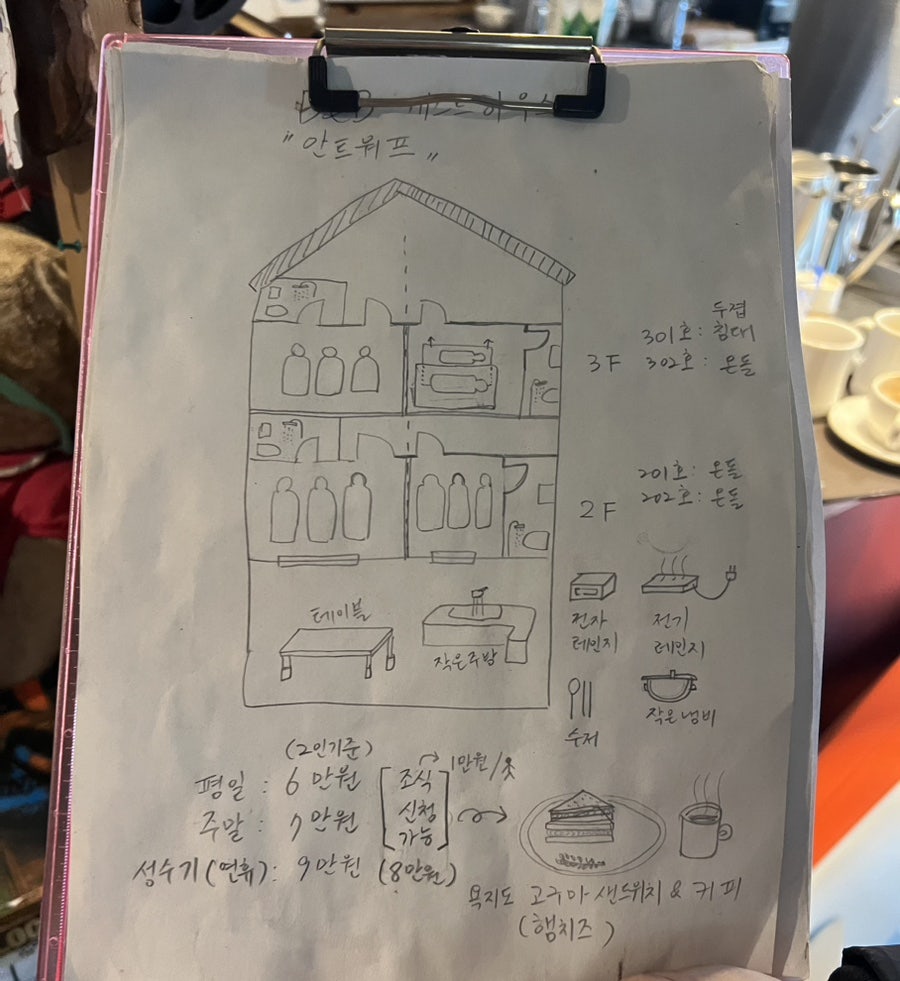 B&B 게스트하우스
"안트워프"
두겹
301호: 침대
3F 302호: 온돌
201호: 온돌
2F 202호: 온돌
테이블
작은주방
전자
레인지
전기
레인지
수저
작은냄비
(2인기준)
평일 : 6만원
주말 : 7만원
성수기(연휴): 9만원 (8만원)
[조식
신청
가능]
1만원/
욕지도 고구마 샌드위치 & 커피
(햄치즈)